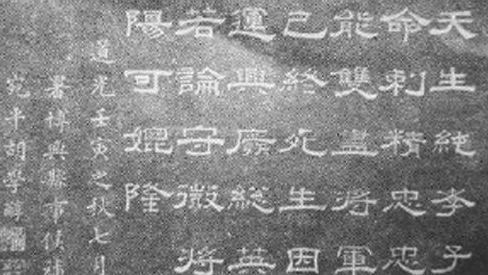 天生純孝子
命刺精忠忠
能雙盡將軍
己終死生因
運興廢總英
若論守微將
陽可媲隆
道光壬寅之秋七月
署博興縣事候補
宛平胡學醇